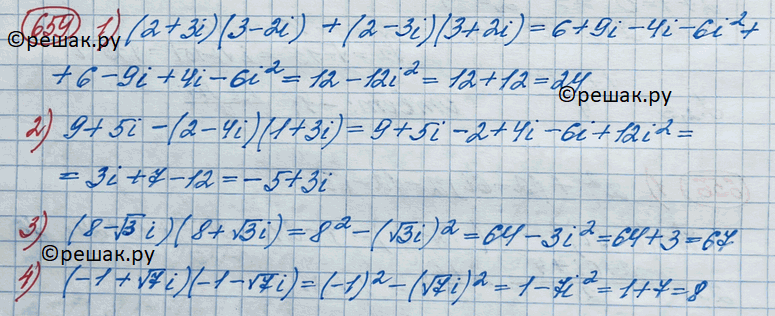 659 1) (2+3i)(3-2i) + (2-3i)(3+2i) = 6+9i-4i-6i²+
©решак.ру
+6-9i+4i-6i² = 12-12i² = 12+12 = 24
©решак.ру
2) 9+5i-(2-4i)(1+3i) = 9+5i-2+4i-6i+12i² =
= 3i+7-12 = -5+3i
3) (8-√3i)(8+√3i) = 8²-(√3i)² = 64-3i² = 64+3 = 67
©решак.ру
4) (-1+√7i)(-1-√7i) = (-1)²-(√7i)² = 1-7i² = 1+7 = 8